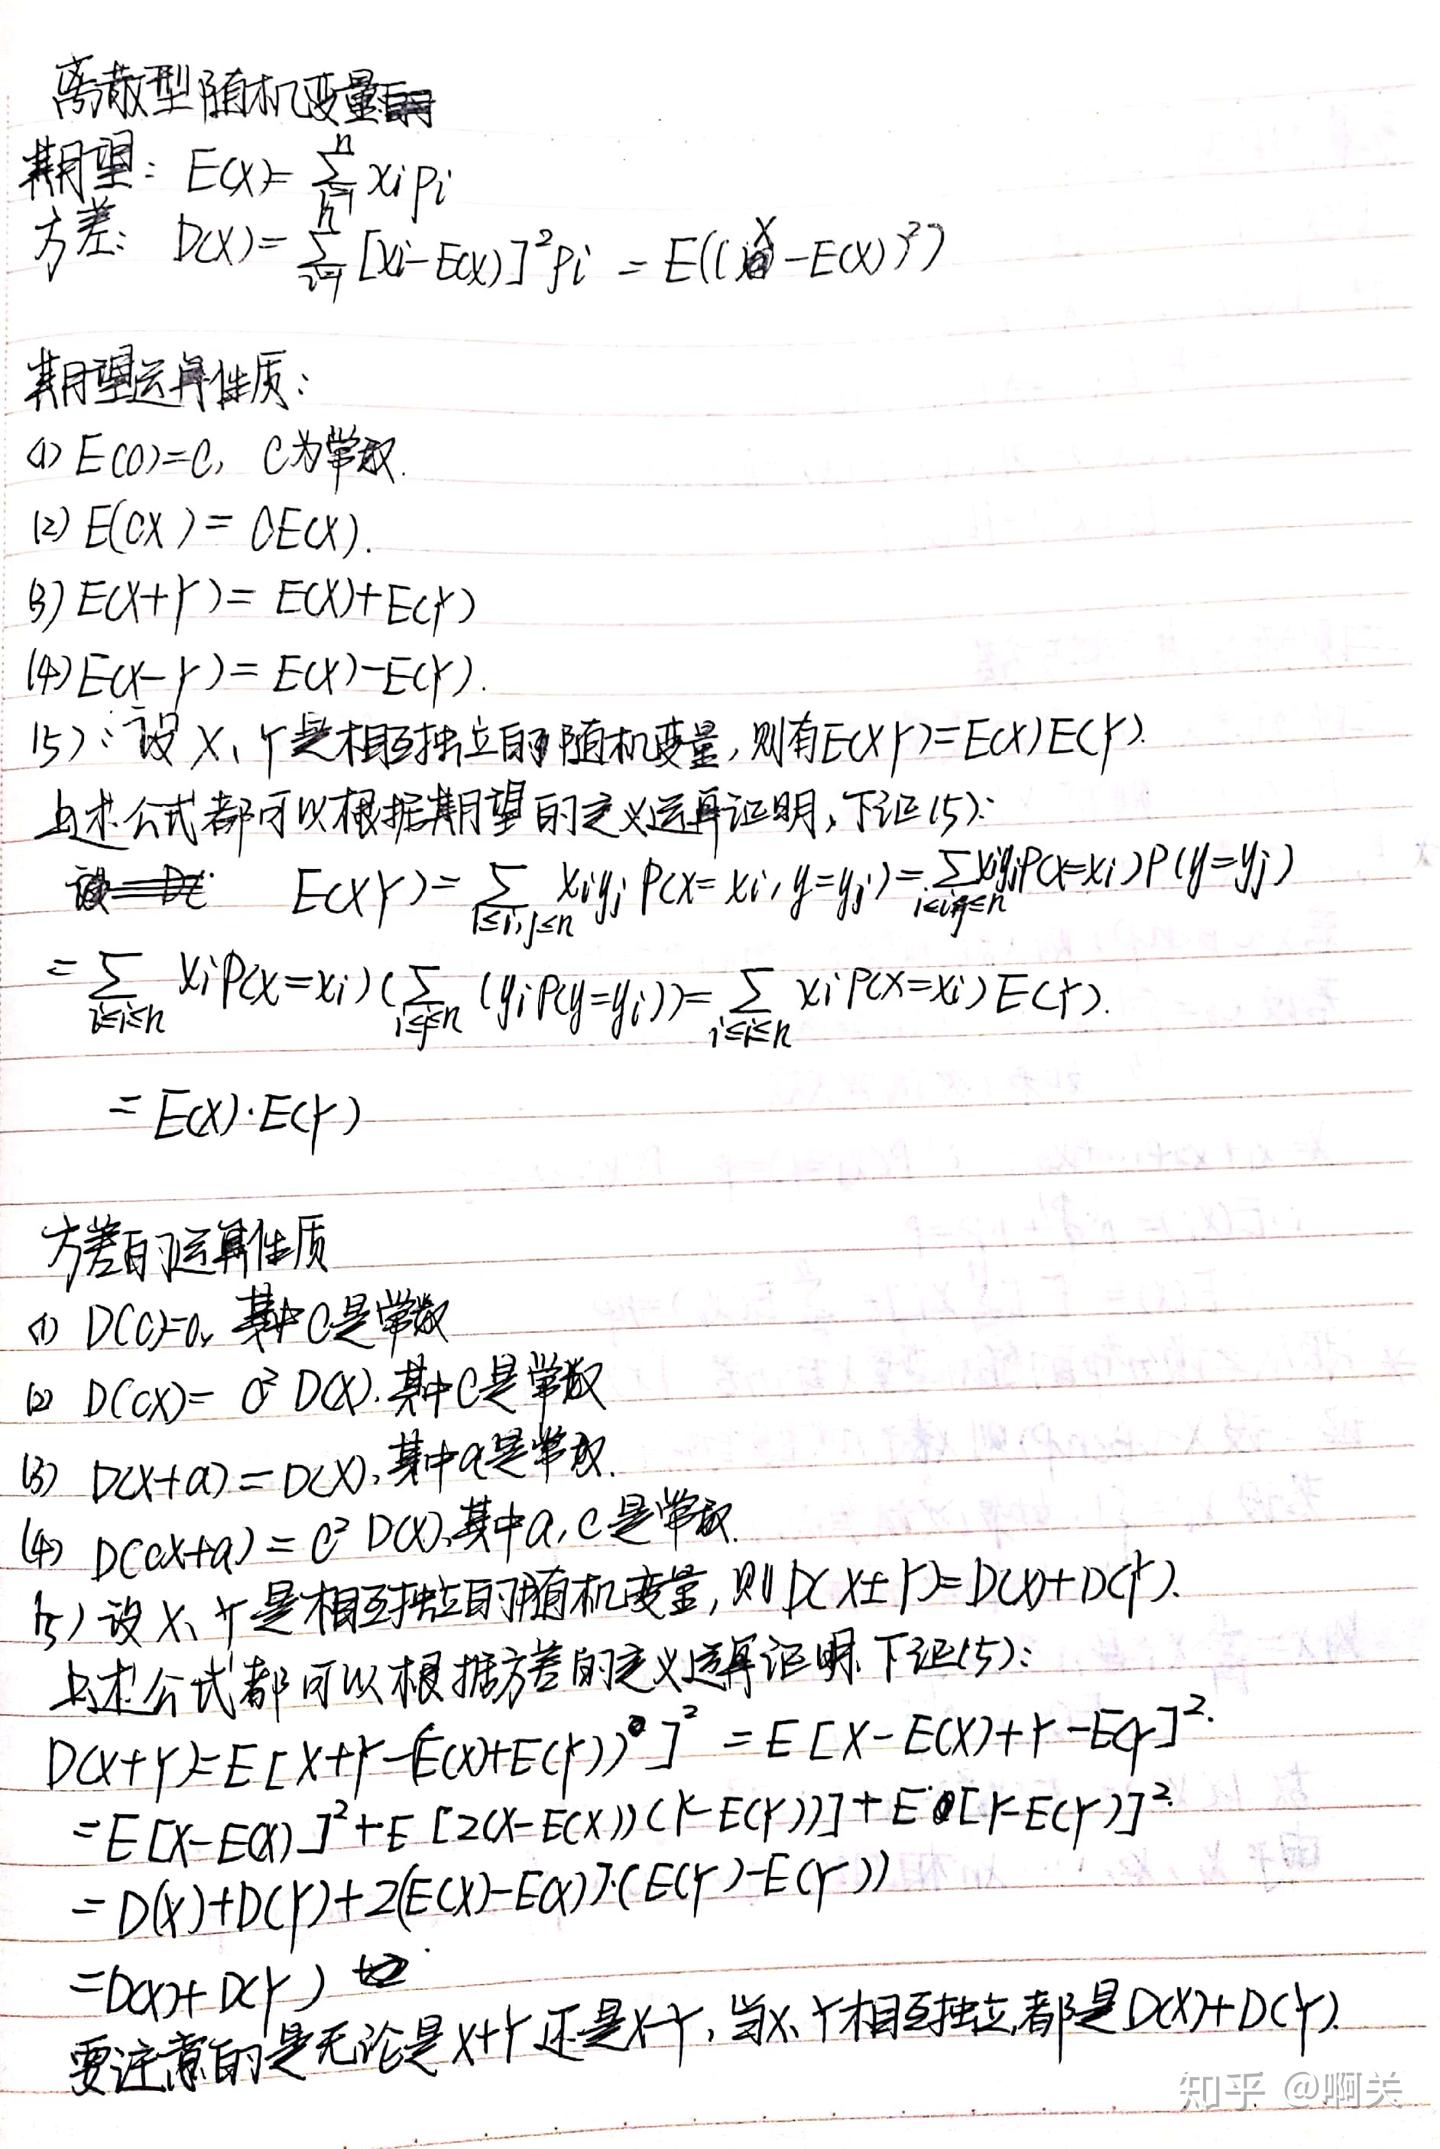 离散型随机变量
期望: E(X)=∑_{i=1}^{n} xipi
方差: D(X)=∑_{i=1}^{n} [xi-E(X)]²pi = E((X-E(X))²)
期望运算性质:
(1) E(C)=C, C为常数.
(2) E(CX)=CE(X).
(3) E(X+Y)=E(X)+E(Y)
(4) E(X-Y)=E(X)-E(Y).
(5): 设X、Y是相互独立的随机变量,则有E(XY)=E(X)E(Y).
上述公式都可以根据期望的定义运算证明,下证(5):
E(XY)=∑_{1≤i,j≤n} xiyj P(X=xi, y=yj)=∑_{1≤i,j≤n} xiyjP(X=xi)P(y=yj)
=∑_{1≤i≤n} xiP(X=xi)(∑_{1≤j≤n}(yjP(y=yj))=∑_{1≤i≤n} xiP(X=xi)E(Y).
=E(X)·E(Y)
方差的运算性质
(1) D(C)=0, 其中C是常数
(2) D(CX)=C²D(X), 其中C是常数
(3) D(X+a)=D(X), 其中a是常数.
(4) D(CX+a)=C²D(X), 其中a, C是常数.
(5) 设X、Y是相互独立的随机变量,则D(X±Y)=D(X)+D(Y).
上述公式都可以根据方差的定义运算证明.下证(5):
D(X+Y)=E[X+Y-(E(X)+E(Y))]²=E[X-E(X)+Y-E(Y)]².
=E[X-E(X)]²+E[2(X-E(X))(Y-E(Y))]+E[Y-E(Y)]².
=D(X)+D(Y)+2(E(X)-E(X))·(E(Y)-E(Y))
=D(X)+D(Y)
要注意的是无论是X+Y还是X-Y,当X、Y相互独立,都是D(X)+D(Y).
知乎 @啊关